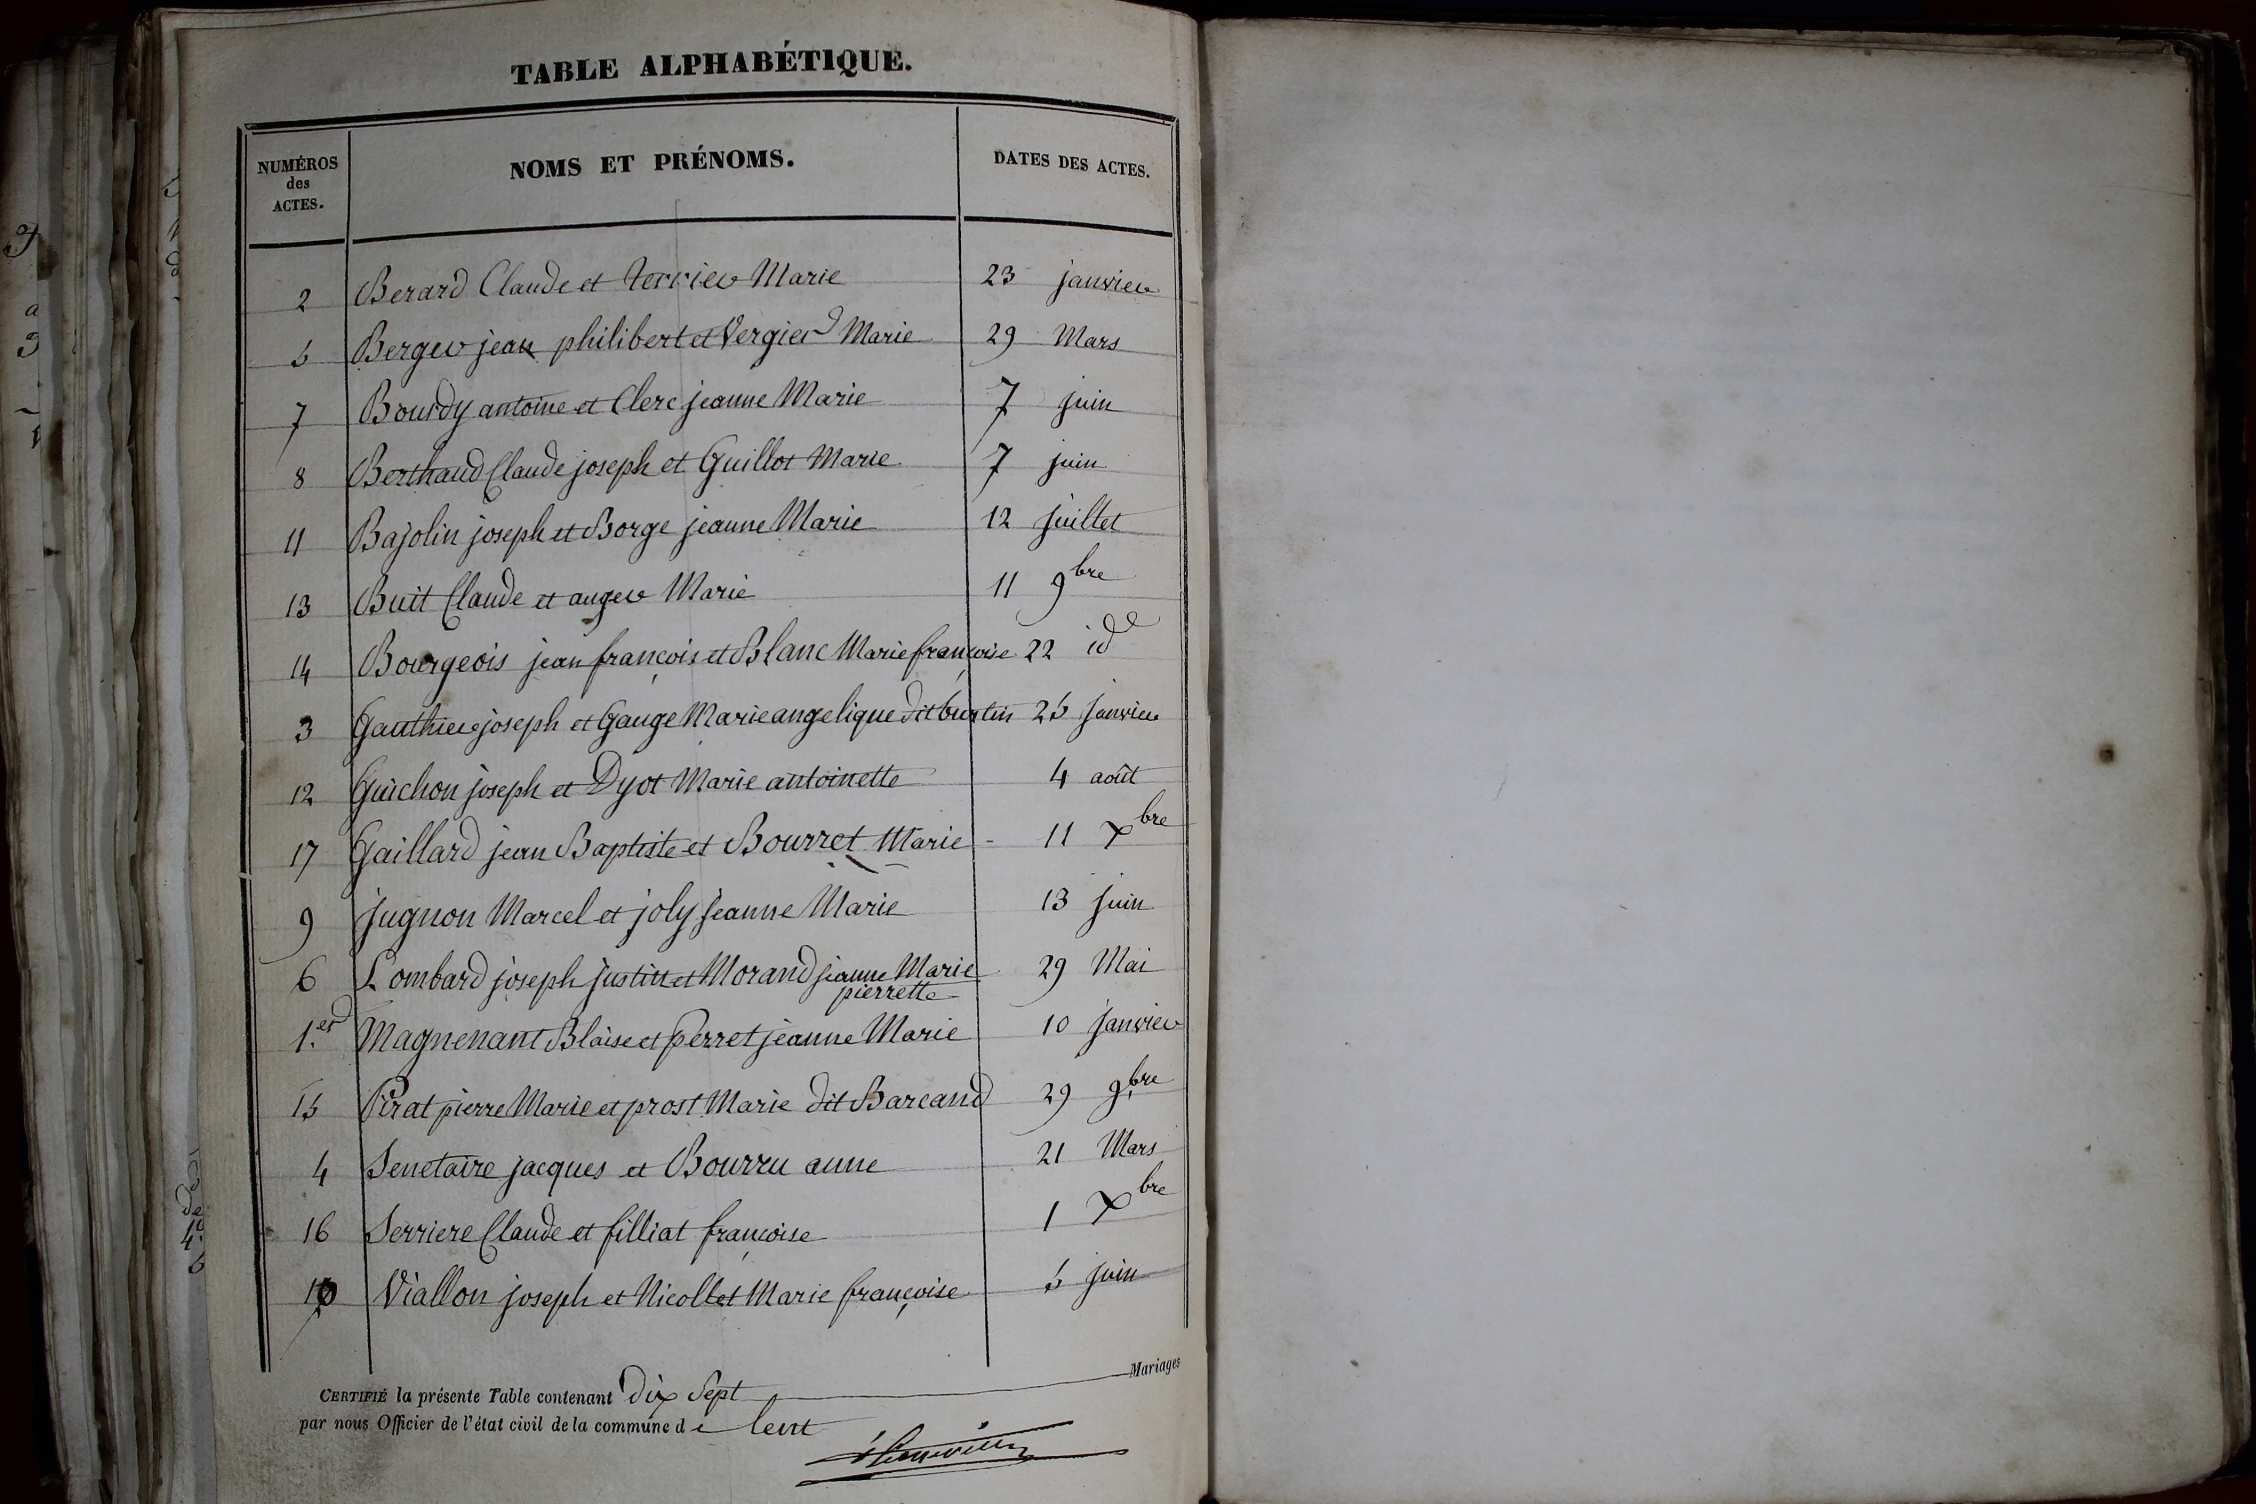 TABLE ALPHABÉTIQUE.
NUMÉROS des ACTES. NOMS ET PRÉNOMS. DATES DES ACTES.
2 Berard Claude et terrier Marie 23 janvier
5 Berger jean philibert et Vergier Marie 29 Mars
7 Bourdy antoine et Clerc jeanne Marie 7 juin
8 Berthaud Claude joseph et Guillot Marie 7 juin
11 Bajolin joseph et Borge jeanne Marie 12 juillet
13 Buit Claude et auger Marie 11 9bre
14 Bourgeois jean françois et Blanc Marie françoise 22 id
3 Gauthier joseph et Gauge Marie angelique dit burtin 25 janvier
12 Guichon joseph et Dyot Marie antoinette 4 août
17 Gaillard jean Baptiste et Bourret Marie - 11 Xbre
9 jugnon Marcel et joly jeanne Marie 13 juin
6 Lombard joseph justin et Morand jeanne Marie 29 Mai
pierrette
1.er Magnenant Blaise et perret jeanne Marie 10 janvier
15 Pirat pierre Marie et prost Marie dit Barcand 29 9bre
4 Senetaire jacques et Bourru anne 21 Mars
16 Serriere Claude et filliat françoise 1 Xbre
10 Viallon joseph et Nicollet Marie françoise 5 juin
CERTIFIÉ la présente Table contenant dix sept Mariages
par nous Officier de l'état civil de la commune de lent